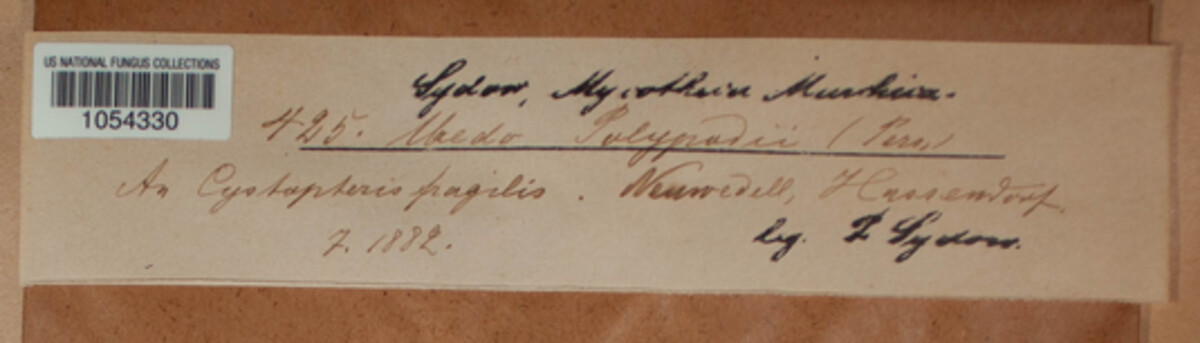 US NATIONAL FUNGUS COLLECTIONS
1054330
Sydow, Mycotheca Marchica.
425. Uredo Polypodii (Pers.)
An Cystopteris fragilis. Neuwedell, Hassendorf.
7. 1882.
leg. P. Sydow.